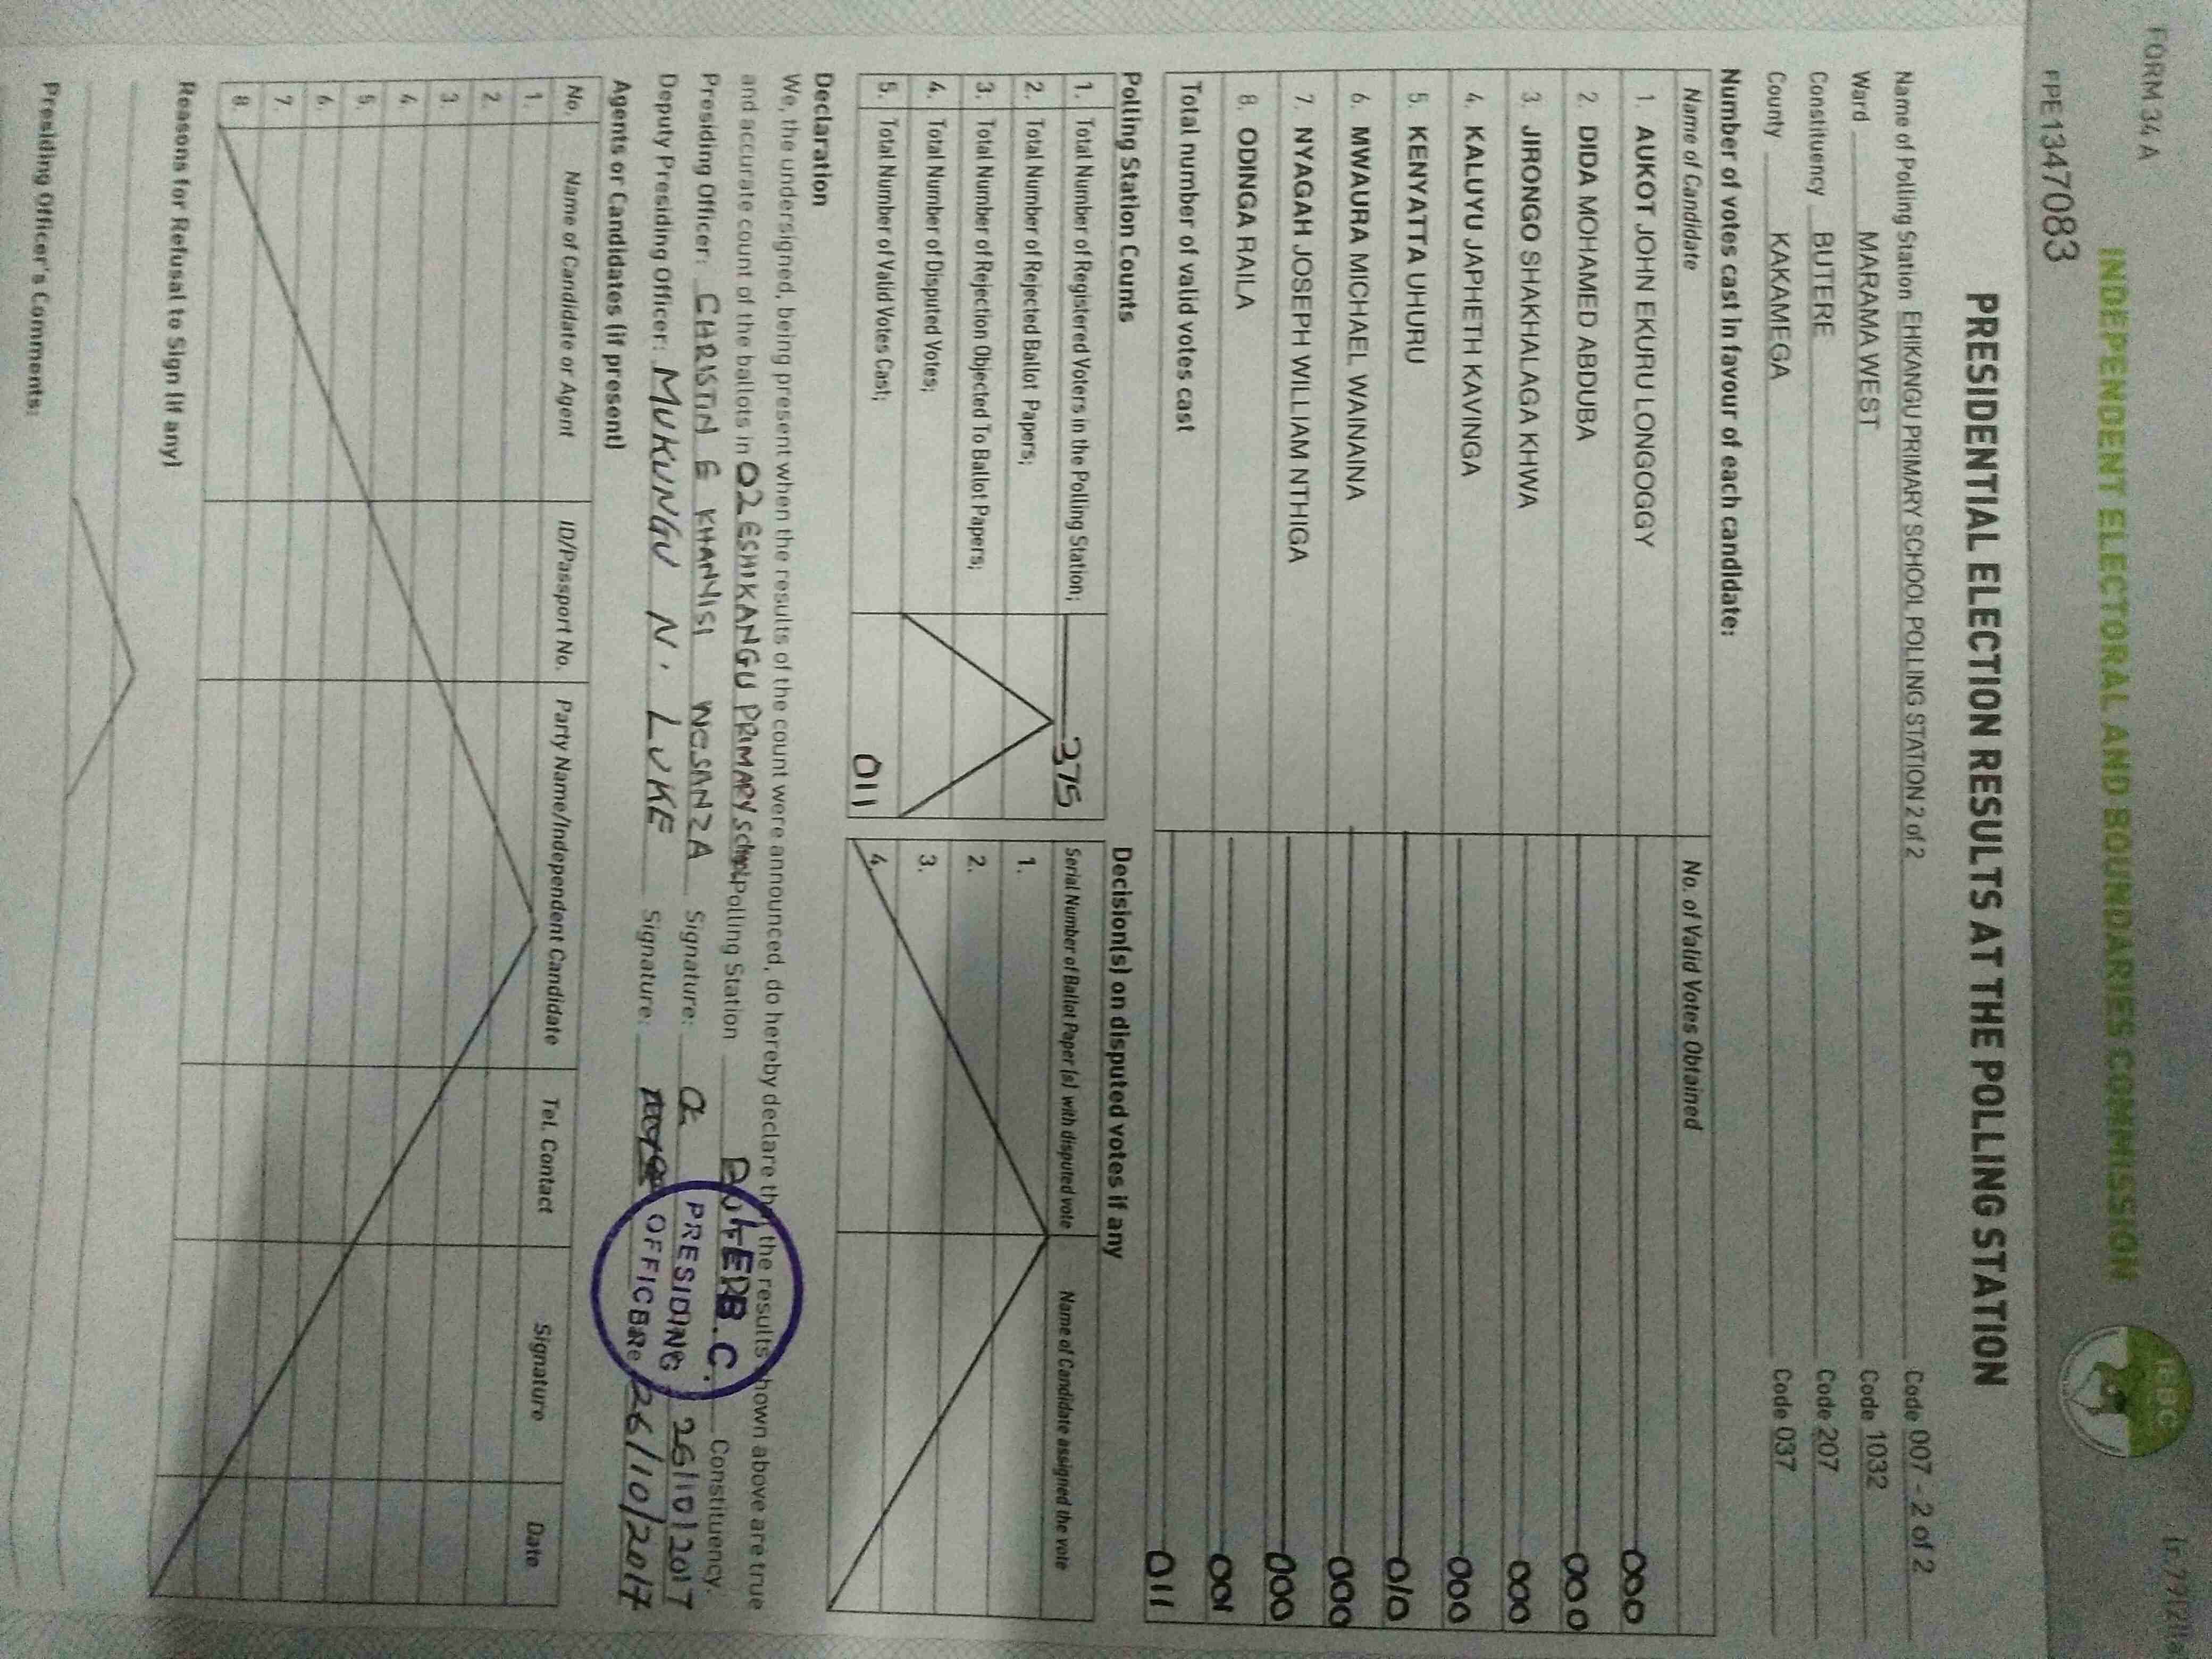 FORM 34 A
INDEPENDENT ELECTORAL AND BOUNDARIES COMMISSION
IEBC
FPE1347083
PRESIDENTIAL ELECTION RESULTS AT THE POLLING STATION
Name of Polling Station EHIKANGU PRIMARY SCHOOL POLLING STATION 2 of 2 Code 007 - 2 of 2
Ward MARAMA WEST Code 1032
Constituency BUTERE Code 207
County KAKAMEGA Code 037
Number of votes cast in favour of each candidate:
Name of Candidate No. of Valid Votes Obtained
1. AUKOT JOHN EKURU LONGOGGY 000
2. DIDA MOHAMED ABDUBA 000
3. JIRONGO SHAKHALAGA KHWA 000
4. KALUYU JAPHETH KAVINGA 000
5. KENYATTA UHURU 010
6. MWAURA MICHAEL WAINAINA 000
7. NYAGAH JOSEPH WILLIAM NTHIGA 000
8. ODINGA RAILA 001
Total number of valid votes cast 011
Polling Station Counts Decision(s) on disputed votes if any
1. Total Number of Registered Voters in the Polling Station; 375 Serial Number of Ballot Paper (s) with disputed vote Name of Candidate assigned the vote
2. Total Number of Rejected Ballot Papers; 1.
3. Total Number of Rejection Objected To Ballot Papers; 2.
4. Total Number of Disputed Votes; 3.
5. Total Number of Valid Votes Cast; 011 4.
Declaration
We, the undersigned, being present when the results of the count were announced, do hereby declare that the results shown above are true
and accurate count of the ballots in 02 ESHIKANGU PRIMARY School Polling Station Constituency.
Presiding Officer: CHRISTIN E KHANNISI Signature: 26/10/2017
Deputy Presiding Officer: MUKUNGU N. LUKE Signature: 26/10/2017
PRESIDING
Agents or Candidates (if present)
No. Name of Candidate or Agent ID/Passport No. Party Name/Independent Candidate Tel. Contact Signature Date
1.
2.
3.
4.
5.
6.
7.
8.
Reasons for Refusal to Sign (if any)
Presiding Officer's Comments: